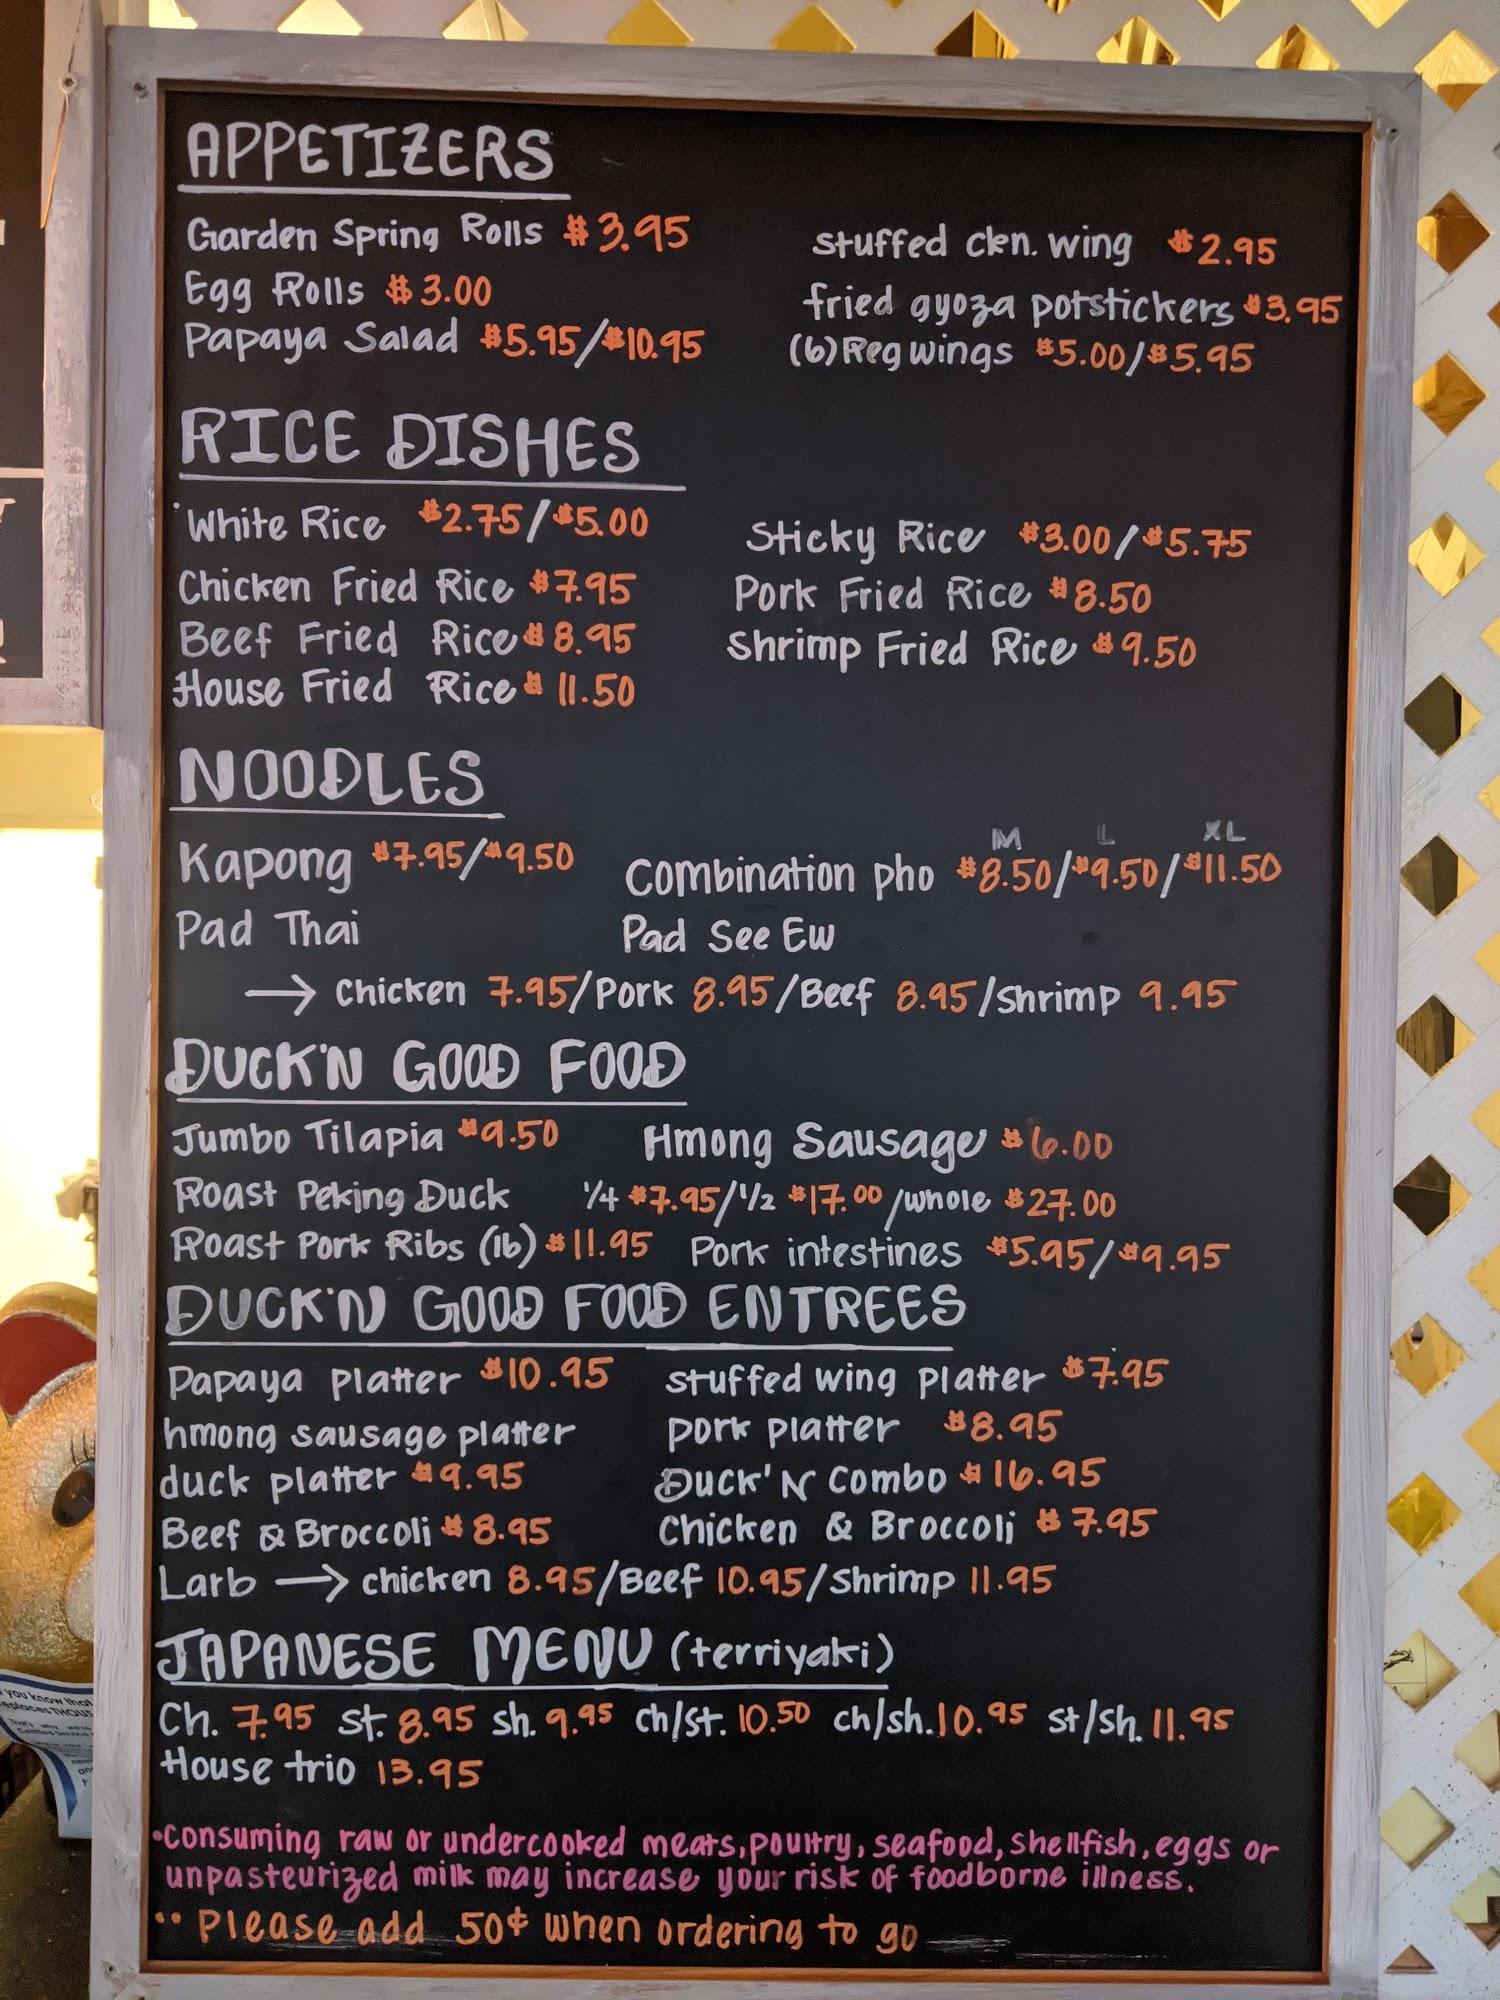 APPETIZERS
Garden Spring Rolls $3.95
stuffed ckn. wing $2.95
Egg Rolls $3.00
fried gyoza potstickers $3.95
Papaya Salad $5.95/$10.95
(6) Reg wings $5.00/$5.95
RICE DISHES
White Rice $2.75/$5.00
Sticky Rice $3.00/$5.75
Chicken Fried Rice $7.95
Pork Fried Rice $8.50
Beef Fried Rice $8.95
Shrimp Fried Rice $9.50
House Fried Rice $11.50
NOODLES
M L XL
Kapong $7.95/$9.50
Combination pho $8.50/$9.50/$11.50
Pad Thai
Pad See Ew
→ Chicken 7.95/Pork 8.95/Beef 8.95/Shrimp 9.95
DUCK'N GOOD FOOD
Jumbo Tilapia $9.50
Hmong Sausage $6.00
Roast Peking Duck 1/4 $7.95/1/2 $17.00/whole $27.00
Roast Pork Ribs (lb) $11.95
Pork intestines $5.95/$9.95
DUCK'N GOOD FOOD ENTREES
Papaya platter $10.95
stuffed wing platter $7.95
hmong sausage platter
pork platter $8.95
duck platter $9.95
Duck'N Combo $16.95
Beef & Broccoli $8.95
Chicken & Broccoli $7.95
Larb → chicken 8.95/Beef 10.95/Shrimp 11.95
JAPANESE MENU (terriyaki)
Ch. 7.95 st. 8.95 sh. 9.95 ch/st. 10.50 ch/sh. 10.95 st/sh. 11.95
House trio 13.95
•Consuming raw or undercooked meats, poultry, seafood, shellfish, eggs or
unpasteurized milk may increase your risk of foodborne illness.
•• Please add 50¢ when ordering to go